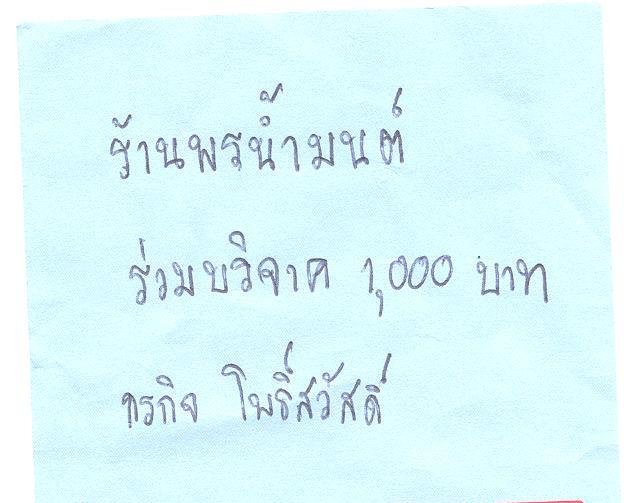 ร้านพรน้ำมนต์
ร่วมบริจาค 1,000 บาท
กรกิจ โพธิ์สวัสดิ์